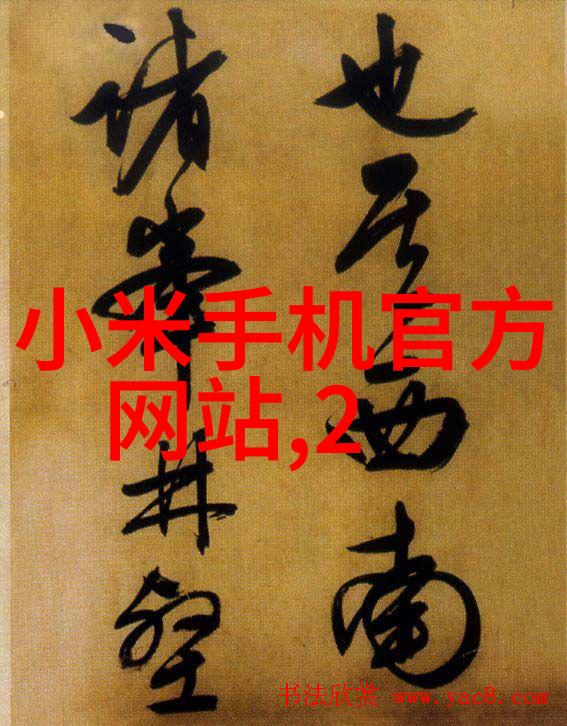 也其西南
诸峰林壑
小米手机官方
网站,2
书法欣赏 www.yac8.com